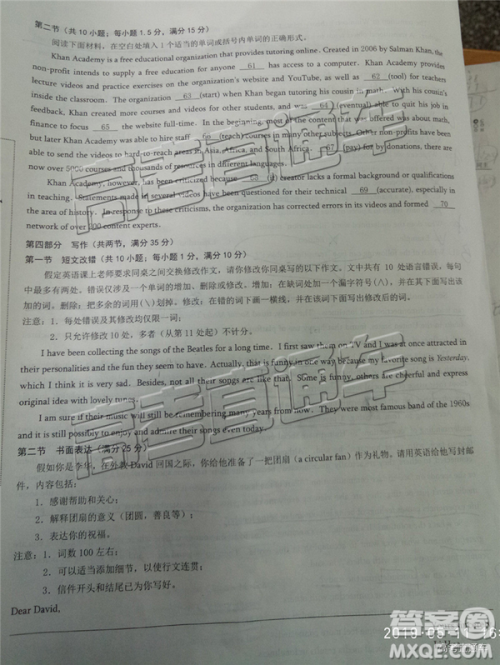 第二节（共 10 小题；每小题 1.5 分，满分 15 分）
阅读下面材料，在空白处填入 1 个适当的单词或括号内单词的正确形式。
Khan Academy is a free educational organization that provides tutoring online. Created in 2006 by Salman Khan, the
non-profit intends to supply a free education for anyone 61 has access to a computer. Khan Academy provides
lecture videos and practice exercises on the organization's website and YouTube, as well as 62 (tool) for teachers
inside the classroom. The organization 63 (start) when Khan began tutoring his cousin in math with his cousin's
feedback, Khan created more courses and videos for other students, and was 64 (eventual) able to quit his job in
finance to focus 65 the website full-time. In the beginning, most of the content that was offered was about math,
but later Khan Academy was able to hire staff 66 (teach) courses in many other subjects. Other non-profits have been
able to send the videos to hard-to-reach areas in Asia, Africa, and South Africa. 67 (pay) for by donations, there are
now over 5000 courses and thousands of resources in different languages.
Khan Academy, however, has been criticized because 68 (it) creator lacks a formal language or qualifications
in teaching. Statements made in several videos have been questioned for their technical 69 (accurate), especially in
the area of history. In response to these criticisms, the organization has corrected errors in videos and formed 70
network of over 200 content experts.
第四部分 写作（共两节，满分 35 分）
第一节 短文改错（共 10 小题；每小题 1 分，满分 10 分）
假定英语课上老师要求同桌之间交换修改作文，请你修改你同桌写的以下作文。文中共有 10 处语言错误，每句
中最多有两处。错误仅涉及一个单词的增加、删除或修改。增加：在缺词处加一个漏字符号(∧)，并在其下面写出该
加的词。删除：把多余的词用(\)划掉。修改：在错的词下画一横线，并在该词下面写出修改后的词。
注意：1. 每处错误及其修改均仅限一词；
2. 只允许修改 10 处，多者（从第 11 处起）不计分。
I have been collecting the songs of the Beatles for a long time. I first saw them on TV and I was at once attracted in
their personalities and the fun they seem to have. Actually, that is funny in one way because my favorite song is Yesterday,
which I think it is very sad. Besides, not all their songs are like that. Some is funny, others are cheerful and express
original idea with lovely tones.
I am sure if their music will still be remembering many years from now. They were most famous band of the 1960s
and it is still possibly to enjoy and admire their songs even today.
第二节 书面表达（满分 25 分）
假如你是李华，在外教 David 回国之际，你给他准备了一把团扇（a circular fan）作为礼物。请用英语给他写封邮
件，内容包括：
1. 感谢帮助和关心；
2. 解释团扇的意义（团圆，善良等）；
3. 表达你的祝福。
注意：1. 词数 100 左右；
2. 可以适当添加细节，以使行文连贯；
3. 信件开头和结尾已为你写好。
Dear David,
高考直通车
答案圈
MXQE.COM